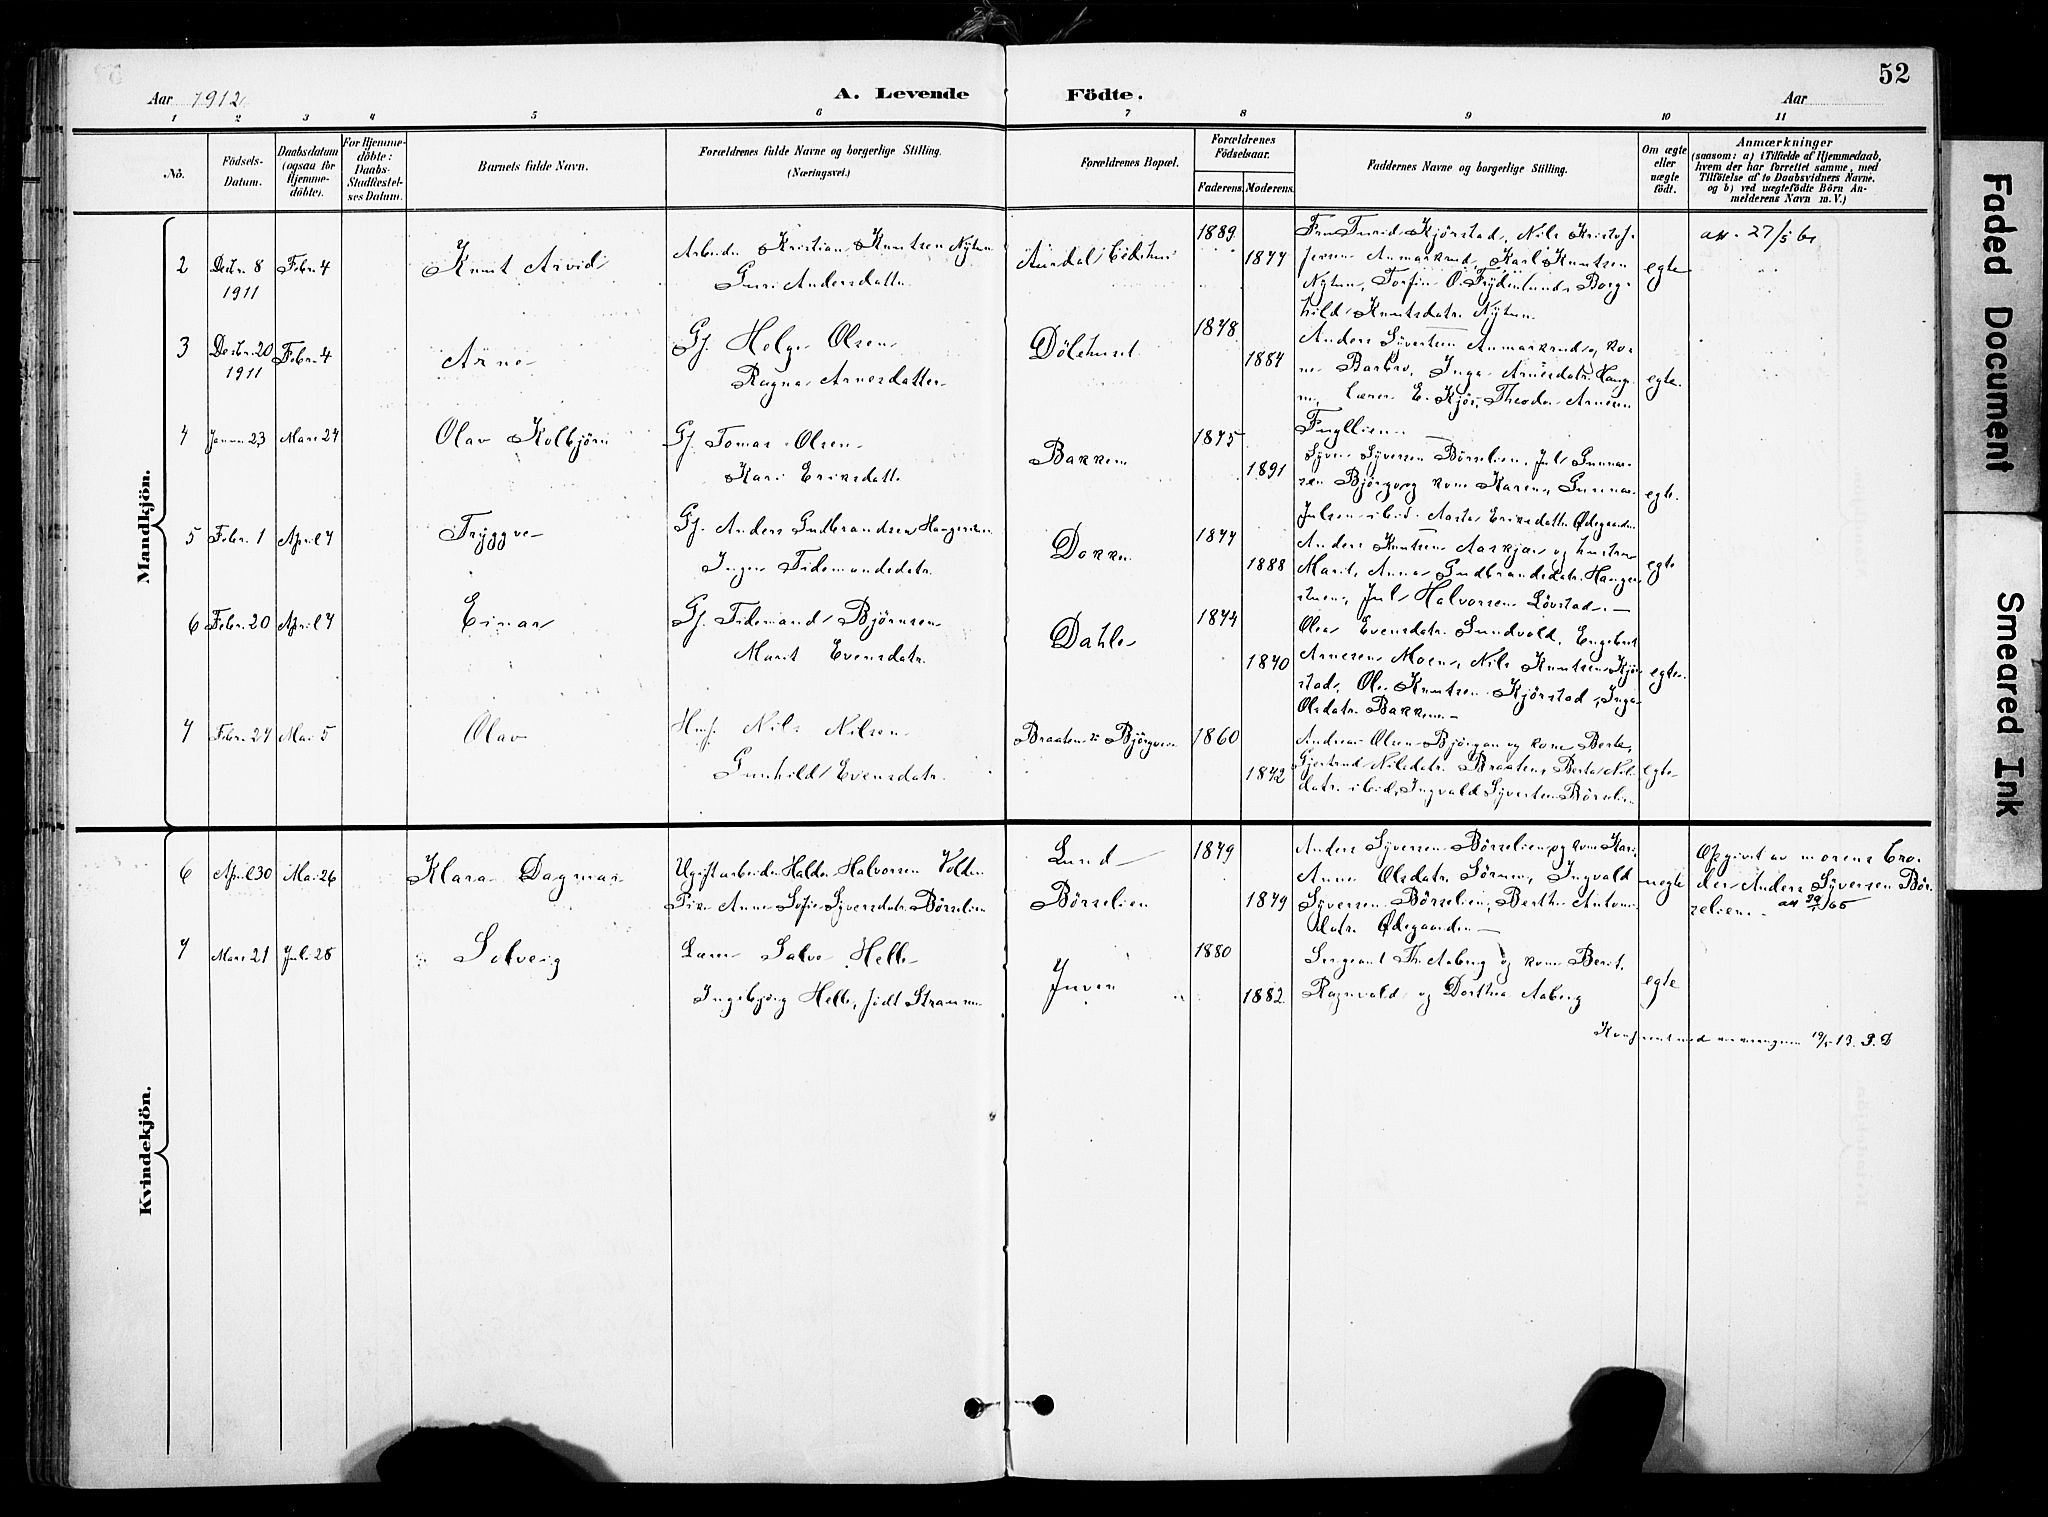 52
Aar 1912
A. Levende Födte.
Aar
1 2 3 4 5 6 7 8 9 10 11
No.
Födsels-Datum.
Daabsdatum (ogsaa for Hjemme-döbte).
For Hjemme-döbte: Daabs-Stadfæstel-ses Datum.
Barnets fulde Navn.
Forældrenes fulde Navne og borgerlige Stilling.
(Næringsvei.)
Forældrenes Bopæl.
Forældrenes Födselsaar.
Faderens. Moderens.
Faddernes Navne og borgerlige Stilling.
Om ægte eller uægte födt.
Anmærkninger
(saasom: a) i Tilfælde af Hjemmedaab,
hvem der har forrettet samme, med
Tilföielse af to Daabsvidners Navne.
og b) ved uægtefödte Börn An-
melderens Navn m. V.)
Mandkjön.
2 Decbr. 8 1911 Febr. 4 Knut Arvid
Kristian Knutsen Nytun
Guri Andersdatter
Aurdal
1889
Fru Turid Kjörstad, Nils Kristof-
fersen Anmarkrud, Karl Knutsen
Nytun, Torfin O. Frydenlund, Borg-
hild Knutsdatr. Nytun
egte
att. 27/5 61
3 Decbr. 20 1911 Febr. 4 Arne
Gj. Helge Olsen
Ragna Arnesdatter
Dölehuset
1878
1884
Anders Syversen Anmarkrud og ko-
ne Barbro, Inga Arnesdatr. Haug-
E. Kjös, Theodor Arnesen
Fugllien
egte.
4 Januar 23 Mars 24 Olav Kolbjörn
Gj. Tomas Olsen
Kari Eriksdatter
Bakken
1875
1891
Syver Syversen Börselien, Jul Gunnar-
sen Björgo og kone Karen, Gunnar
Julsen ibid. Aasta Eriksdatter Ødegaarden
egte.
5 Febr. 1 April 7 Tryggve
Gj. Anders Gudbrandsen Haugerstuen
Inger Tidemandsdatr.
Dokken
1877
1888
Anders Knutsen Aaskjær og hustru
Marit, Anna Gudbrandsdatr. Hauger-
stuen, Jul Halvorsen Lövstad.
egte
6 Febr. 20 April 7 Einar
Gj. Tidemand Björnsen
Marit Evensdatr.
Dahle
1874
1870
Olea Evensdatr. Sundvold, Engebret
Arnesen Moen, Nils Knutsen Kjör-
stad, Ole Knutsen Kjörstad, Inga
Olsdatr. Bakken
egte.
7 Febr. 27 Mai 5 Olav
Hmf. Nils Nilsen
Gunhild Evensdatr.
Braaten Björgoen
1860
1872
Andreas Olsen Björgan og kone Berte,
Gjertrud Nilsdatr. Braaten, Berta Nils-
datr. ibid, Ingvald Syversen Börselien
egte
Kvindekjön.
6 April 30 Mai 26 Klara Dagmar
Ugift arbeider Haldor Halvorsen Volden
Pike Anna Sofie Syversdatr. Börselien
Lund
Börselien
1879
1879
Anders Syversen Börselien og kone Kari,
Anne Olsdatr. Sörum, Ingvald
Syversen Börselien, Berthe Antoni
Olsdatr. Ødegaarden
uegte
Opgivet av morens bro-
der Anders Syversen Bör-
selien.
7 Mars 21 Juli 28 Solveig
Lærer Salve Helle
Ingebjörg Helle, född Stramme
Juven
1880
1882
Sergeant Th. Aaberg og kone Berit,
Ragnvald og Dorthea Aaberg
egte
Faded Document
Smeared Ink